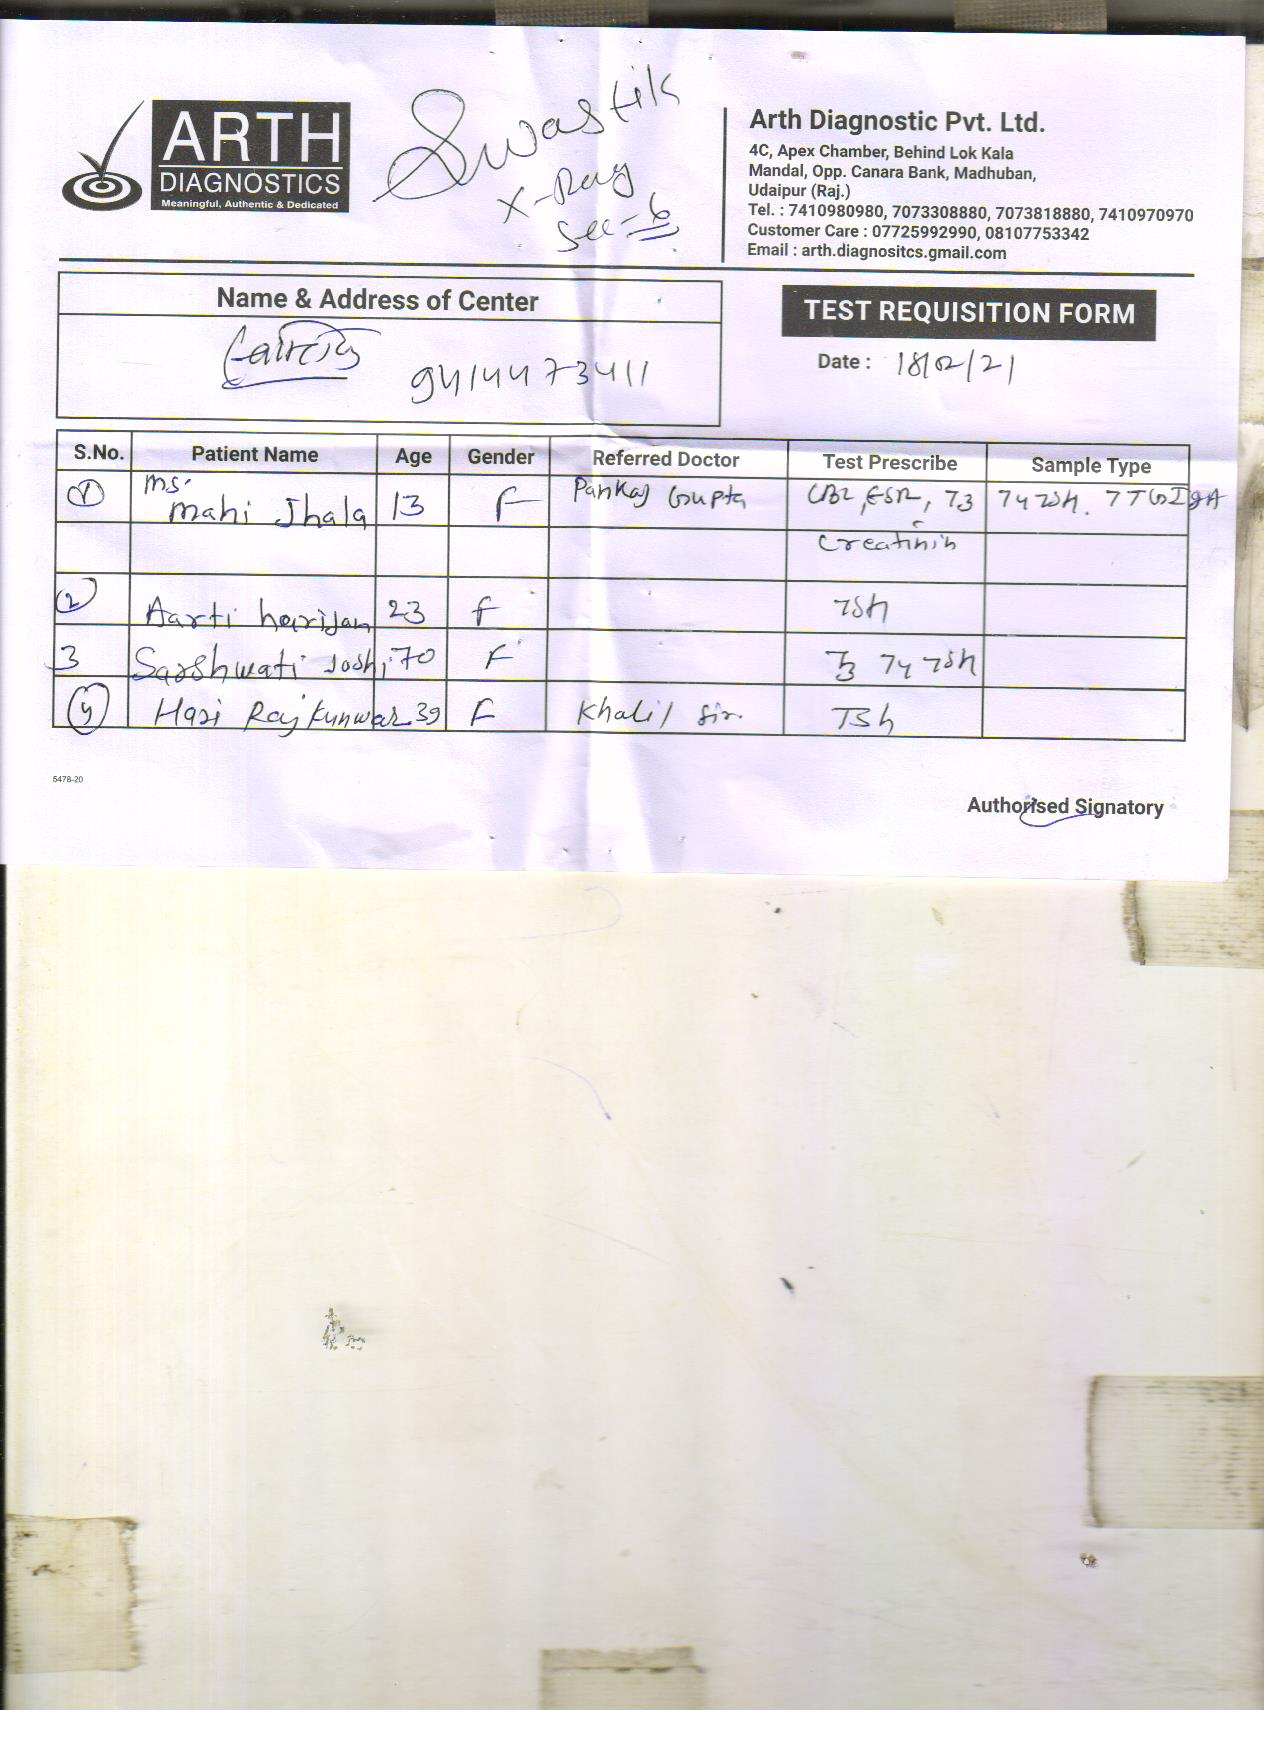 ARTH
DIAGNOSTICS
Meaningful, Authentic & Dedicated
Swastik
X-Ray
Sec-6
Arth Diagnostic Pvt. Ltd.
4C, Apex Chamber, Behind Lok Kala
Mandal, Opp. Canara Bank, Madhuban,
Udaipur (Raj.)
Tel. : 7410980980, 7073308880, 7073818880, 7410970970
Customer Care : 07725992990, 08107753342
Email : arth.diagnositcs.gmail.com
Name & Address of Center
9414473411
TEST REQUISITION FORM
Date : 18/02/21
S.No. Patient Name Age Gender Referred Doctor Test Prescribe Sample Type
1 Ms. Mahi Jhala 13 F Pankaj Gupta CBC, ESR, T3 T4 TSH. TTG IgA
Creatinin
2 Aarti harijan 23 F TSH
3 Sarshwati Joshi 70 F T3 T4 TSH
4 Hari Raj Kunwar 39 F Khalil Sir. TSh
5478-20
Authorised Signatory